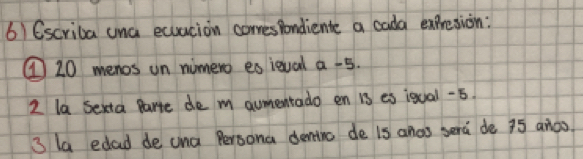 6) Escriba una ecuación correspondiente a cada expresión:
① 20 menos un número es igual a -5.
2 la sexta parte de m aumentado en 13 es igual -5.
3 la edad de una persona dentro de 15 años será de 75 años.